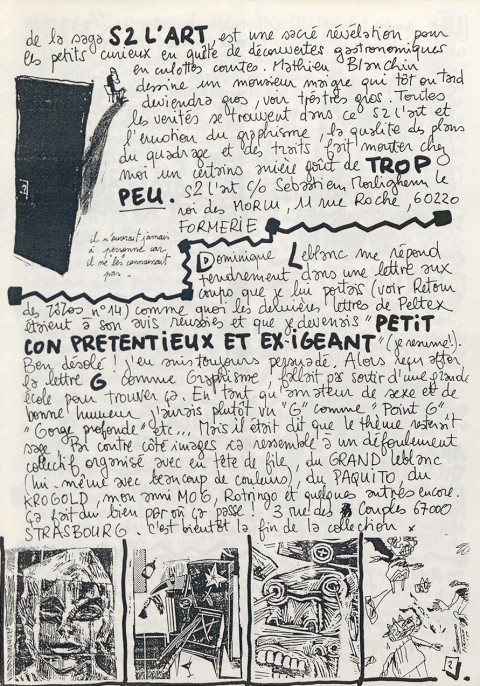 de la saga S2 L'ART, est une sacré révélation pour
les petits curieux en quête de découvertes gastronomiques
en culottes courtes. Mathieu Blanchin
dessine un monsieur maigre qui tôt ou tard
deviendra gros, voir très très gros. Toutes
les vérités se trouvent dans ce S2 l'art et
l'émotion du graphisme, la qualité des plans
du quadrage et des traits fait monter chez
moi un certains arière goût de TROP
PEU. S2 l'art c/o Sebastien Morlighem le
roi des MORLU, 11 rue Roché, 60220
FORMERIE
il n'ouvrait jamais
à personne car
il ne "les" connaissait
pas.
Dominique Leblanc me répond
tendrement dans une lettre aux
coups que je lui portais (voir Retour
des Zôzos n°14) comme quoi les dernières lettres de Peltex
étaient à son avis réussies et que je devenais "PETIT
CON PRETENTIEUX ET EXIGEANT" (je resume!).
Ben désolé! j'en suis toujours persuadé. Alors reçu after
la lettre G comme Graphisme, fallait pas sortir d'une grande
école pour trouver ça. En tant qu'amateur de sexe et de
bonne humeur j'aurais plutôt vu "G" comme "Point G"
"Gorge profonde" etc... Mais il était dit que le thème resterait
sage. Par contre côté images ça ressemble à un défoulement
collectif organisé avec en tête de file, du GRAND leblanc
(lui-même avec beaucoup de couleurs), du PAQUITO, du
KROGOLD, mon ami MOG, Rotringo et quelques autres encore.
Ça fait du bien par où ça passe! 3 rue des Couples 67000
STRASBOURG. c'est bientôt la fin de la collection x
2